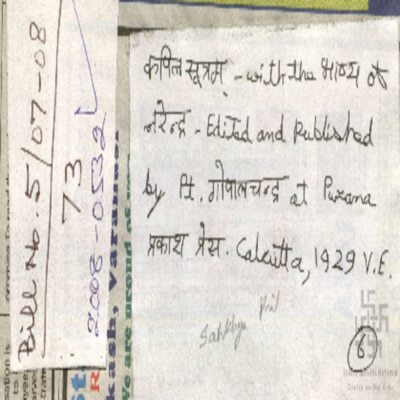 कपिल सूत्रम् - with the भाष्य of
नरेन्द्र - Edited and published
by Pt. गोपालचन्द्र at Purana
प्रकाश प्रेस. Calcutta, 1929 V.E.
Sankhya Phil
6
Bill No. 5/07-08
73
2008-0532
kash, Varanas
We are proud of